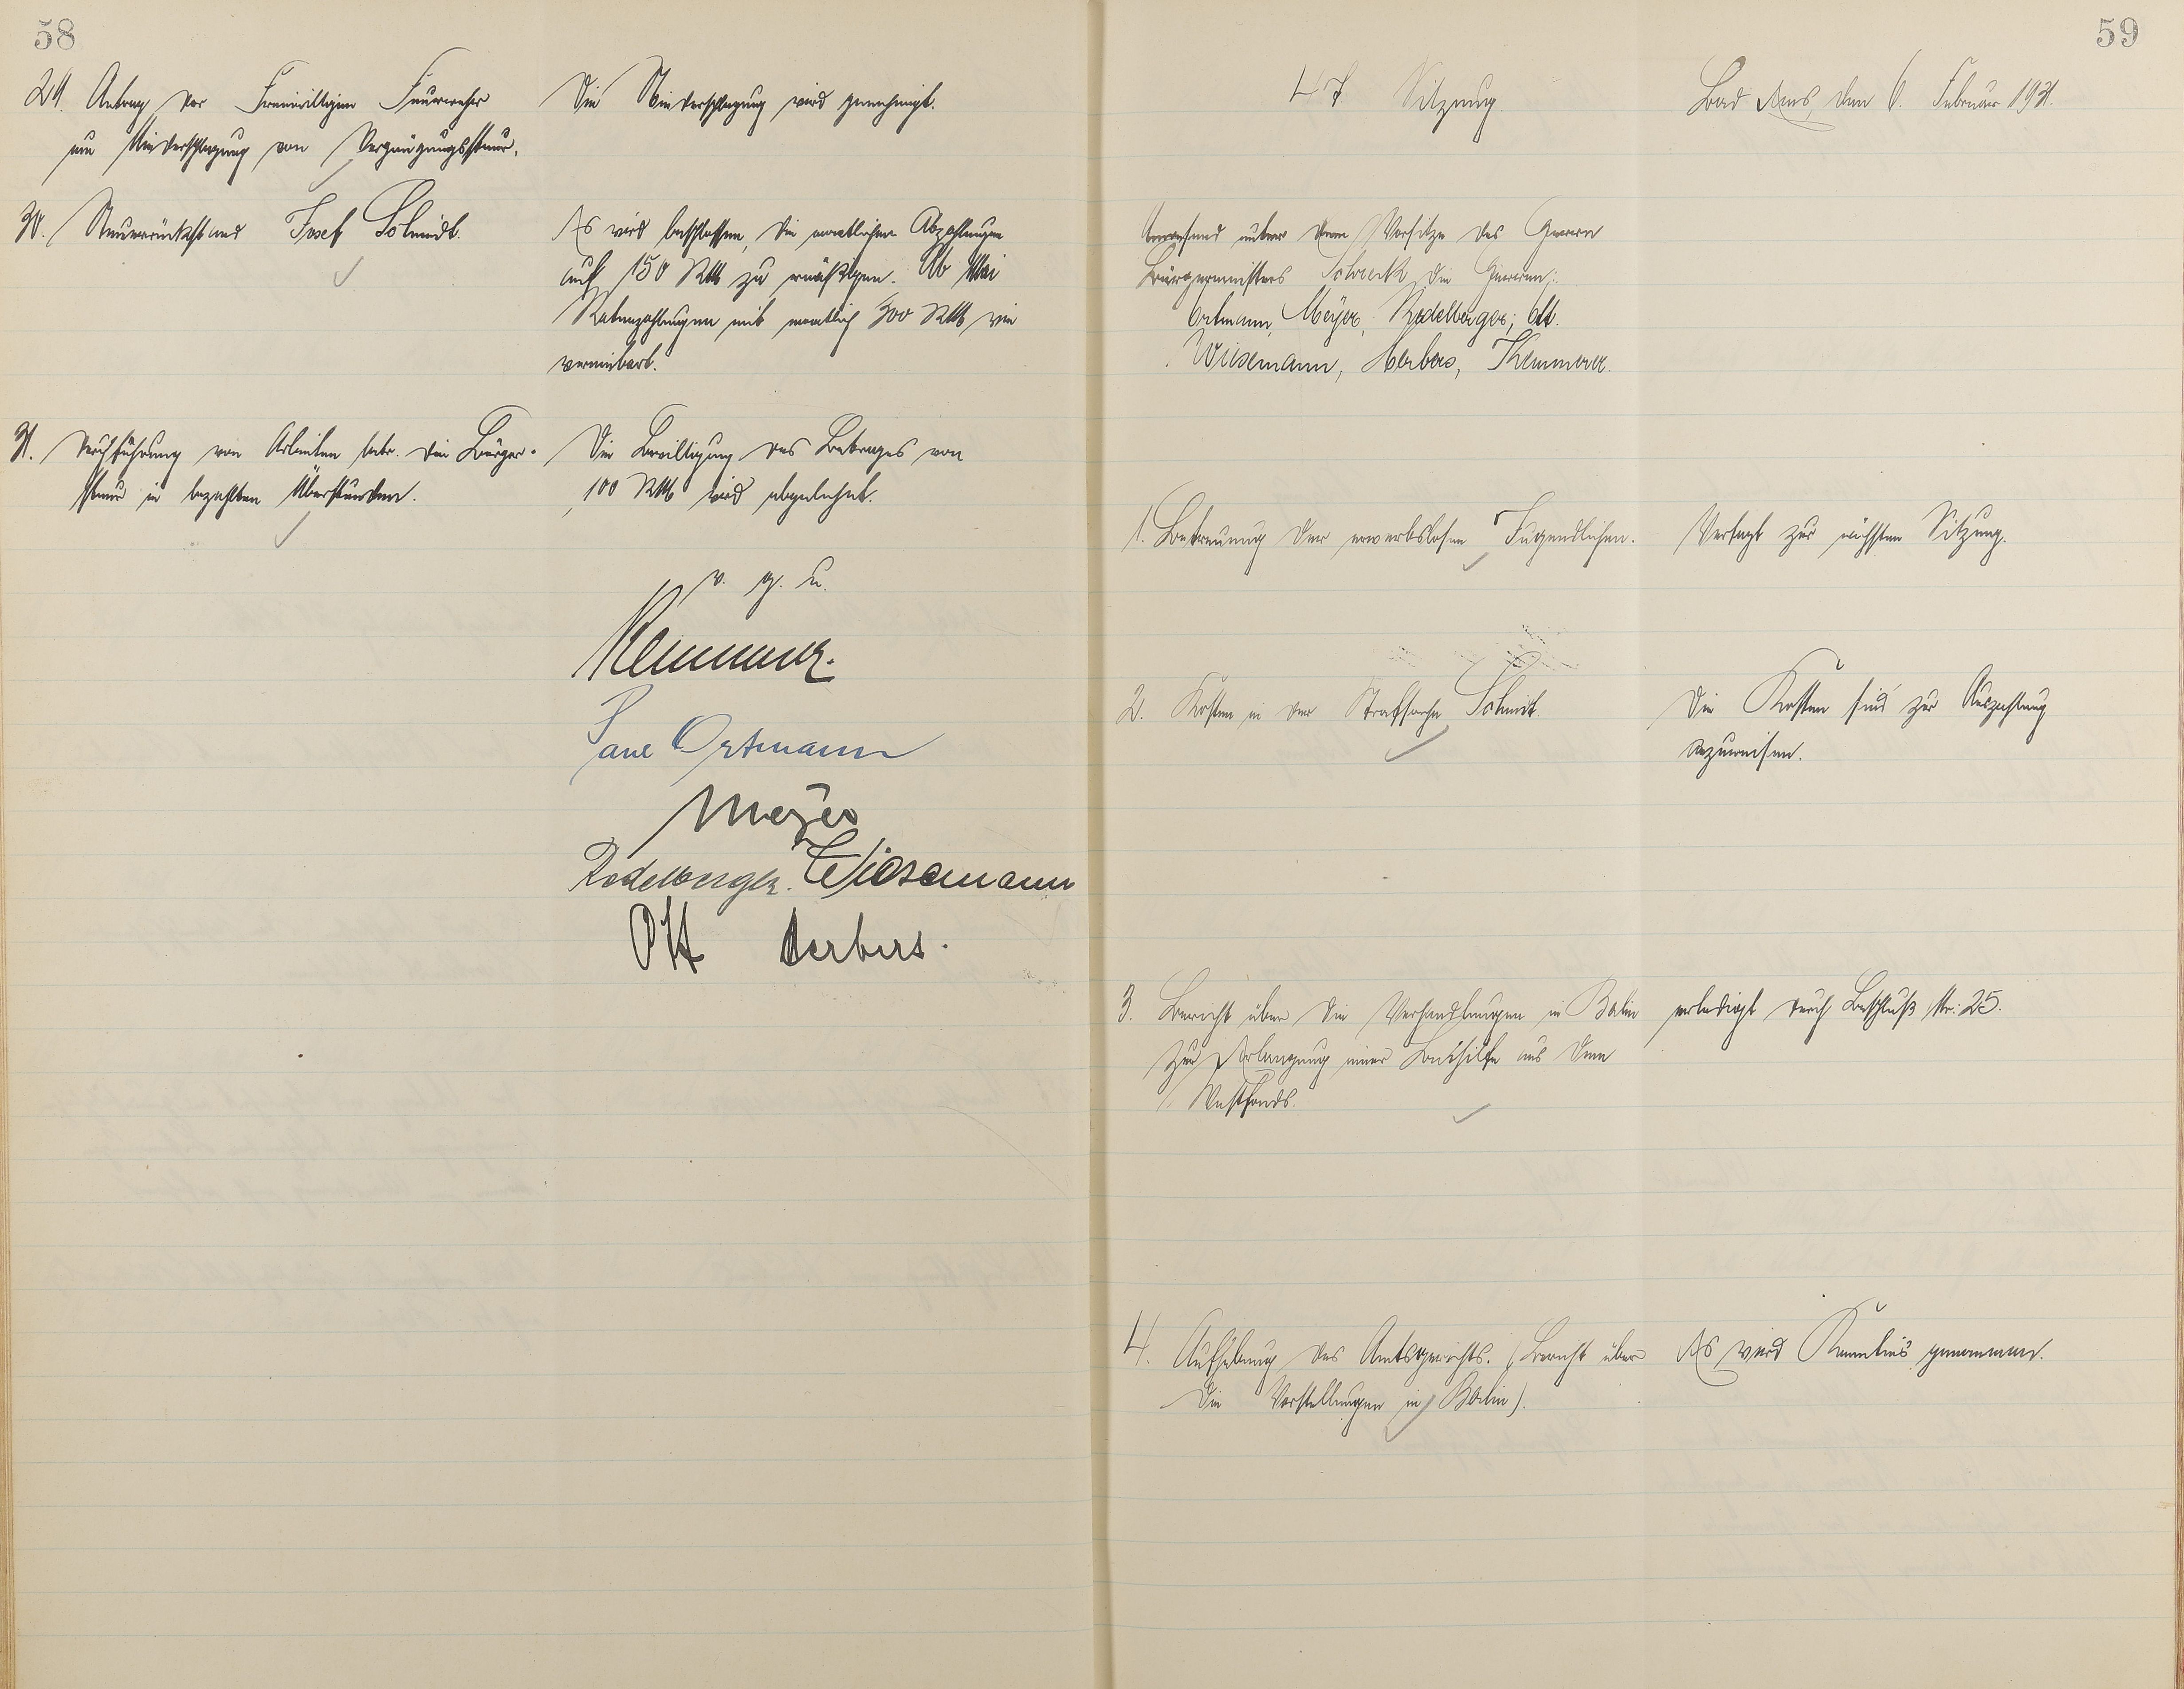 58
29. Antrag der Freiwilligen Feuerwehr
um Niederschlagung von Vergnügungssteuer.
Die Niederschlagung wird genehmigt.
30. Steuerrückstand Josef Schmidt.
Es wird beschlossen, die monatlichen Abzahlungen
auf 150 RM zu ermäßigen. Ab Mai
Ratenzahlungen mit monatlich 300 RM wie
vereinbart.
31. Durchführung von Arbeiten betr. die Bürger-
steuer in bezahlten Überstunden.
Die Bewilligung des Betrages von
100 RM wird abgelehnt.
v. g. u.
Kemmerer.
Paul Ortmann
Meyer
Redelberger. Wiesemann
Ott Herbers.
59
47 Sitzung
Bad Ems, den 6. Februar 1931.
Anwesend unter dem Vorsitze des Herrn
Bürgermeisters Schreck die Herren:
Ortmann, Meyer, Redelberger; Ott.
Wiesemann, Herbers, Kemmerer.
1. Betreuung der erwerbslosen Jugendlichen.
Vertagt zur nächsten Sitzung.
2. Kosten in der Strafsache Schmit.
Die Kosten sind zur Auszahlung
anzuweisen.
3. Bericht über die Verhandlungen in Berlin
zur Erlangung einer Beihilfe aus dem
Westfonds.
erledigt durch Beschluß Nr. 25.
4. Aufhebung des Amtsgerichts. (Bericht über
die Vorstellungen in Berlin).
Es wird Kenntnis genommen.